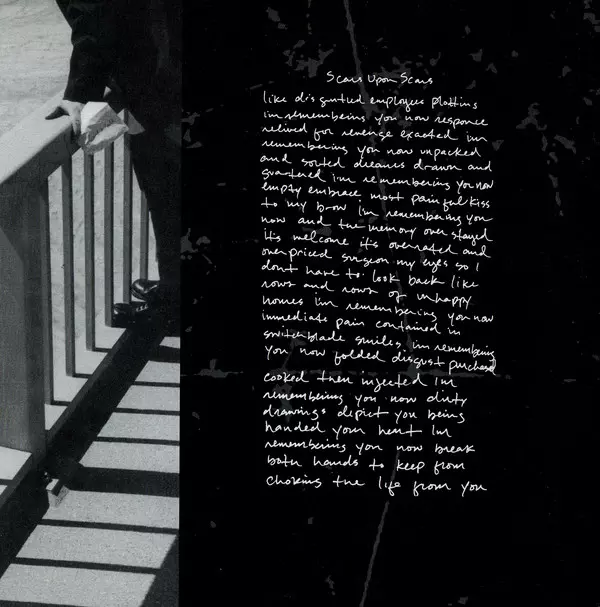 Scars Upon Scars
like disgruntled employees plotting
im remembering you now response
relived for revenge exacted im
remembering you now unpacked
and sorted dreams drawn and
quartered im remembering you now
empty embrace most painful kiss
to my brow im remembering you
now and the memory over stayed
its welcome its overrated and
overpriced surgeon my eyes so I
dont have to look back like
rows and rows of unhappy
homes im remembering you now
immediate pain contained in
switchblade smiles im remembering
you now folded disgust purchased
cooked then injected im
remembering you now dirty
drawings depict you being
handed your heart im
remembering you now break
both hands to keep from
choking the life from you